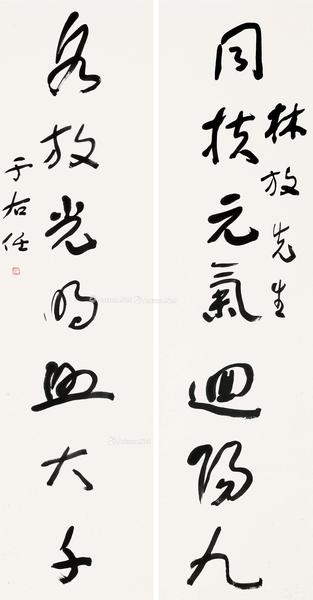 林放先生
同扶元氣迴陽九
各放光明照大千
于右任